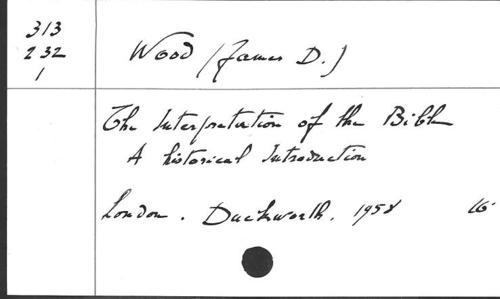 313
232
1
Wood (James D.)
The Interpretation of the Bible
A historical Introduction
London. Duckworth. 1958 16°